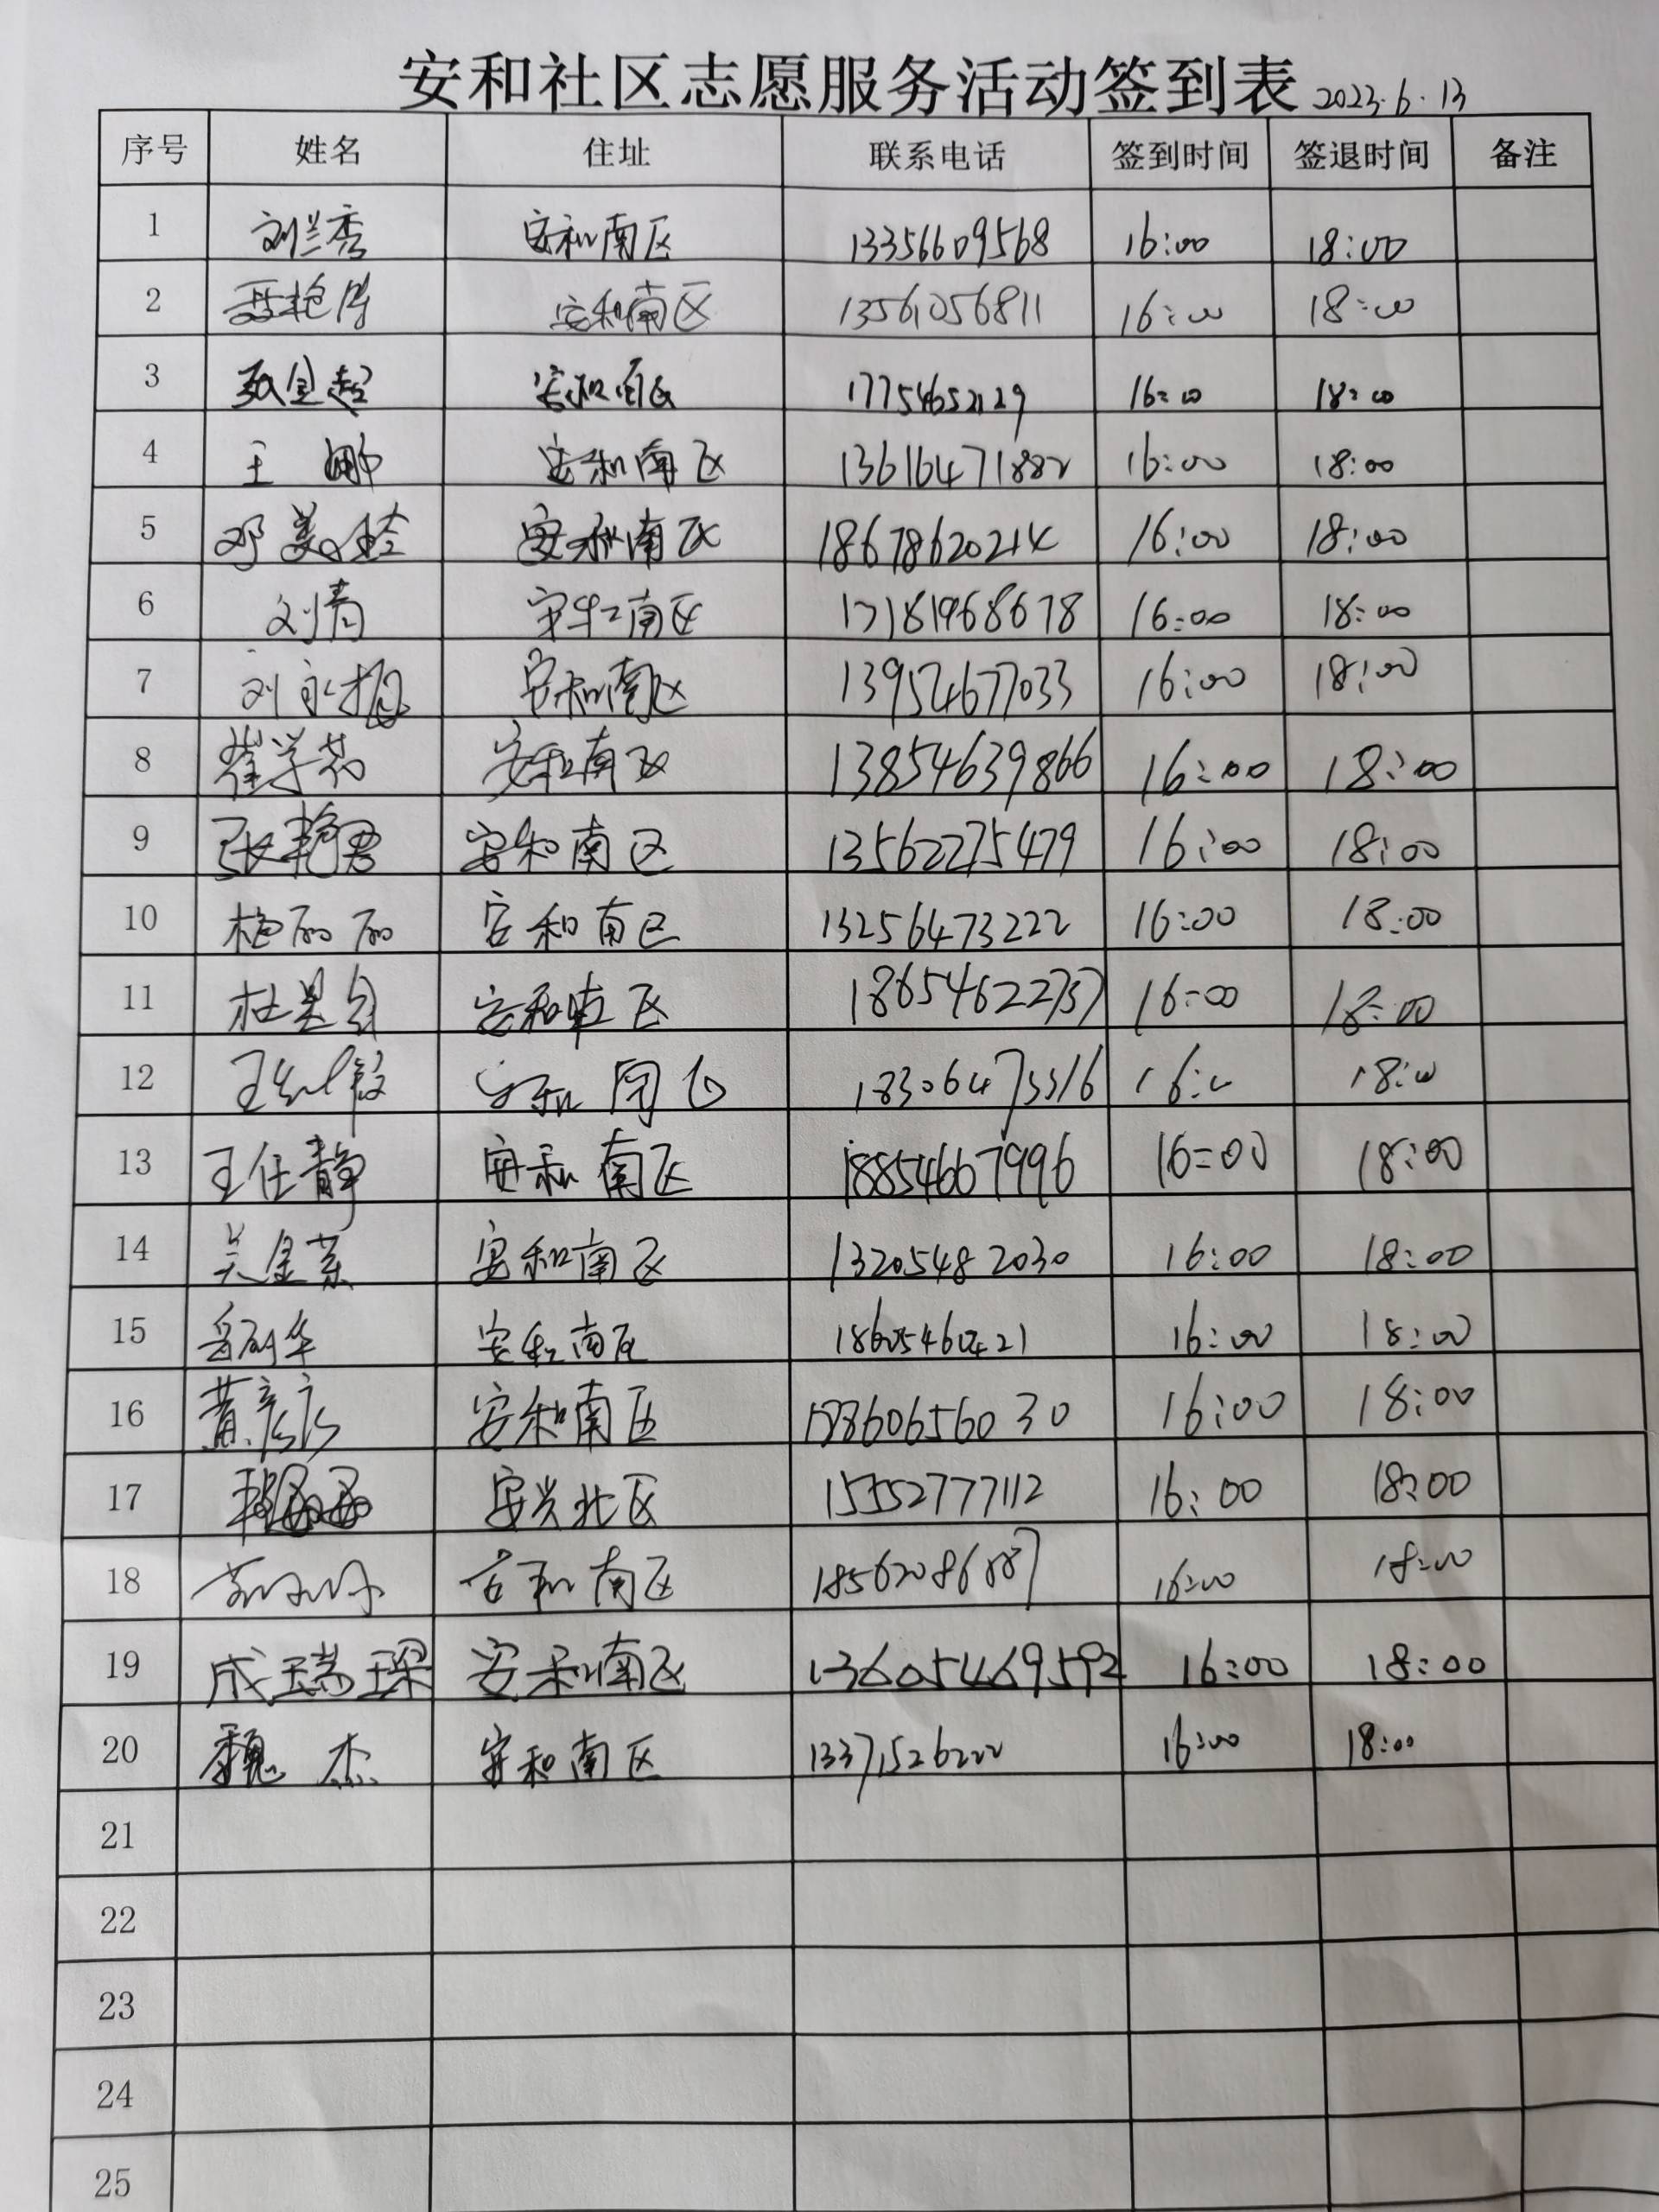 安和社区志愿服务活动签到表 2023.6.13
序号 姓名 住址 联系电话 签到时间 签退时间 备注
1 刘兰秀 安和南区 13356609568 16:00 18:00
2 安和南区 13561056811 16:00 18:00
3 安和南区 17754652129 16:00 18:00
4 王娜 安和南区 13616471882 16:00 18:00
5 邓美玲 安和南区 18678620214 16:00 18:00
6 刘青 安和南区 17181968678 16:00 18:00
7 刘永振 安和南区 13954677033 16:00 18:00
8 崔学芬 安和南区 13854639866 16:00 18:00
9 张艳君 安和南区 13562275479 16:00 18:00
10 杨丽丽 安和南区 13256473222 16:00 18:00
11 安和南区 18654622737 16:00 18:00
12 安和南区 16:00 18:00
13 王任静 安和南区 18854667996 16:00 18:00
14 吴金英 安和南区 13205482030 16:00 18:00
15 岳丽华 安和南区 18605460421 16:00 18:00
16 安和南区 16:00 18:00
17 安兴北区 15552777112 16:00 18:00
18 安和南区 16:00 18:00
19 成瑞琛 安和南区 13605469592 16:00 18:00
20 魏杰 安和南区 13371526222 16:00 18:00
21
22
23
24
25